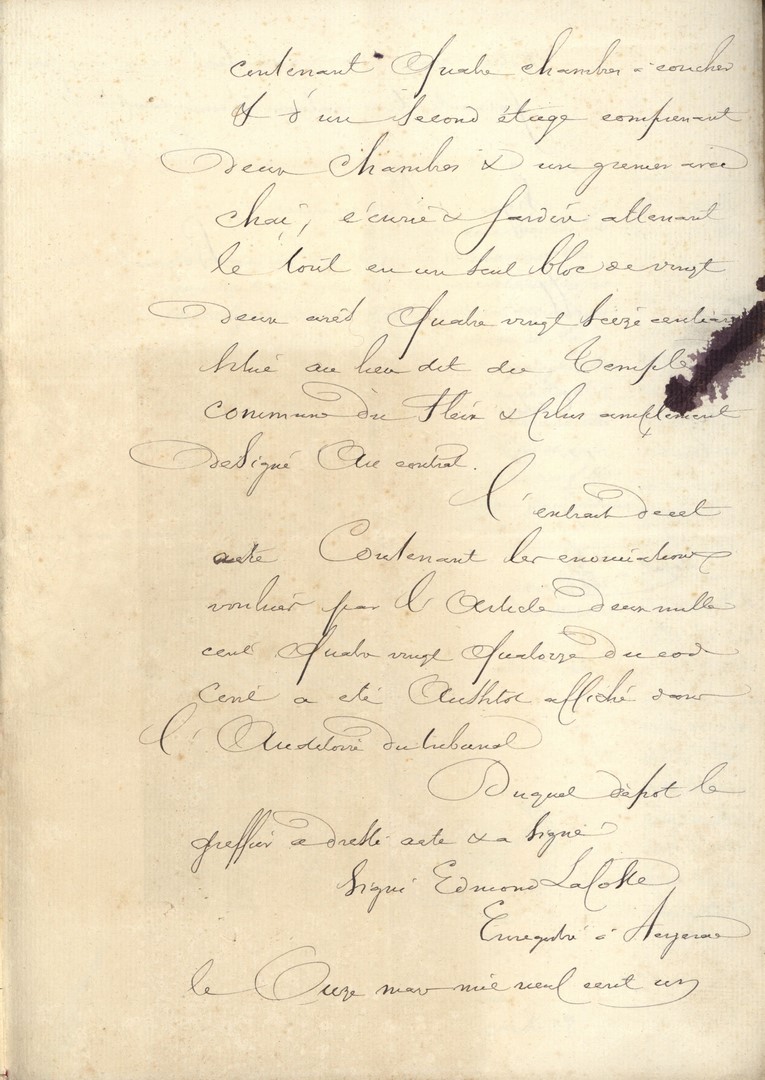 contenant Quatre chambres à coucher
& d'un Second étage comprenant
deux Chambres & un grenier avec
chai, écurie & Jardin attenant
le tout en un Seul bloc de vingt
deux ares Quatre vingt Seize centiares
Situé au lieu dit du Temple
Commune du Fleix & plus amplement
designé Au contrat.
L'extrait de cet
acte Contenant les enonciations
voulues par l'Article deux mille
cent Quatre vingt Quatorze du code
Civil a été Aussitot affiché dans
l'Auditoire du tribunal
Duquel dépot le
greffier a dressé acte & a Signé
Signé Edmond Lacoste
Enregistré à Bergerac
le Onze mars mil neuf cent un